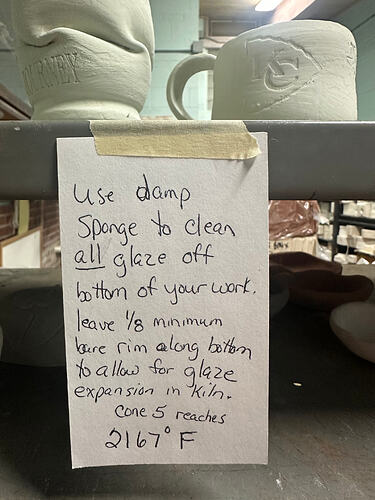 JOURNEY
KC
Use damp
Sponge to clean
all glaze off
bottom of your work.
leave 1/8 minimum
bare rim along bottom
to allow for glaze
expansion in kiln.
Cone 5 reaches
2167° F